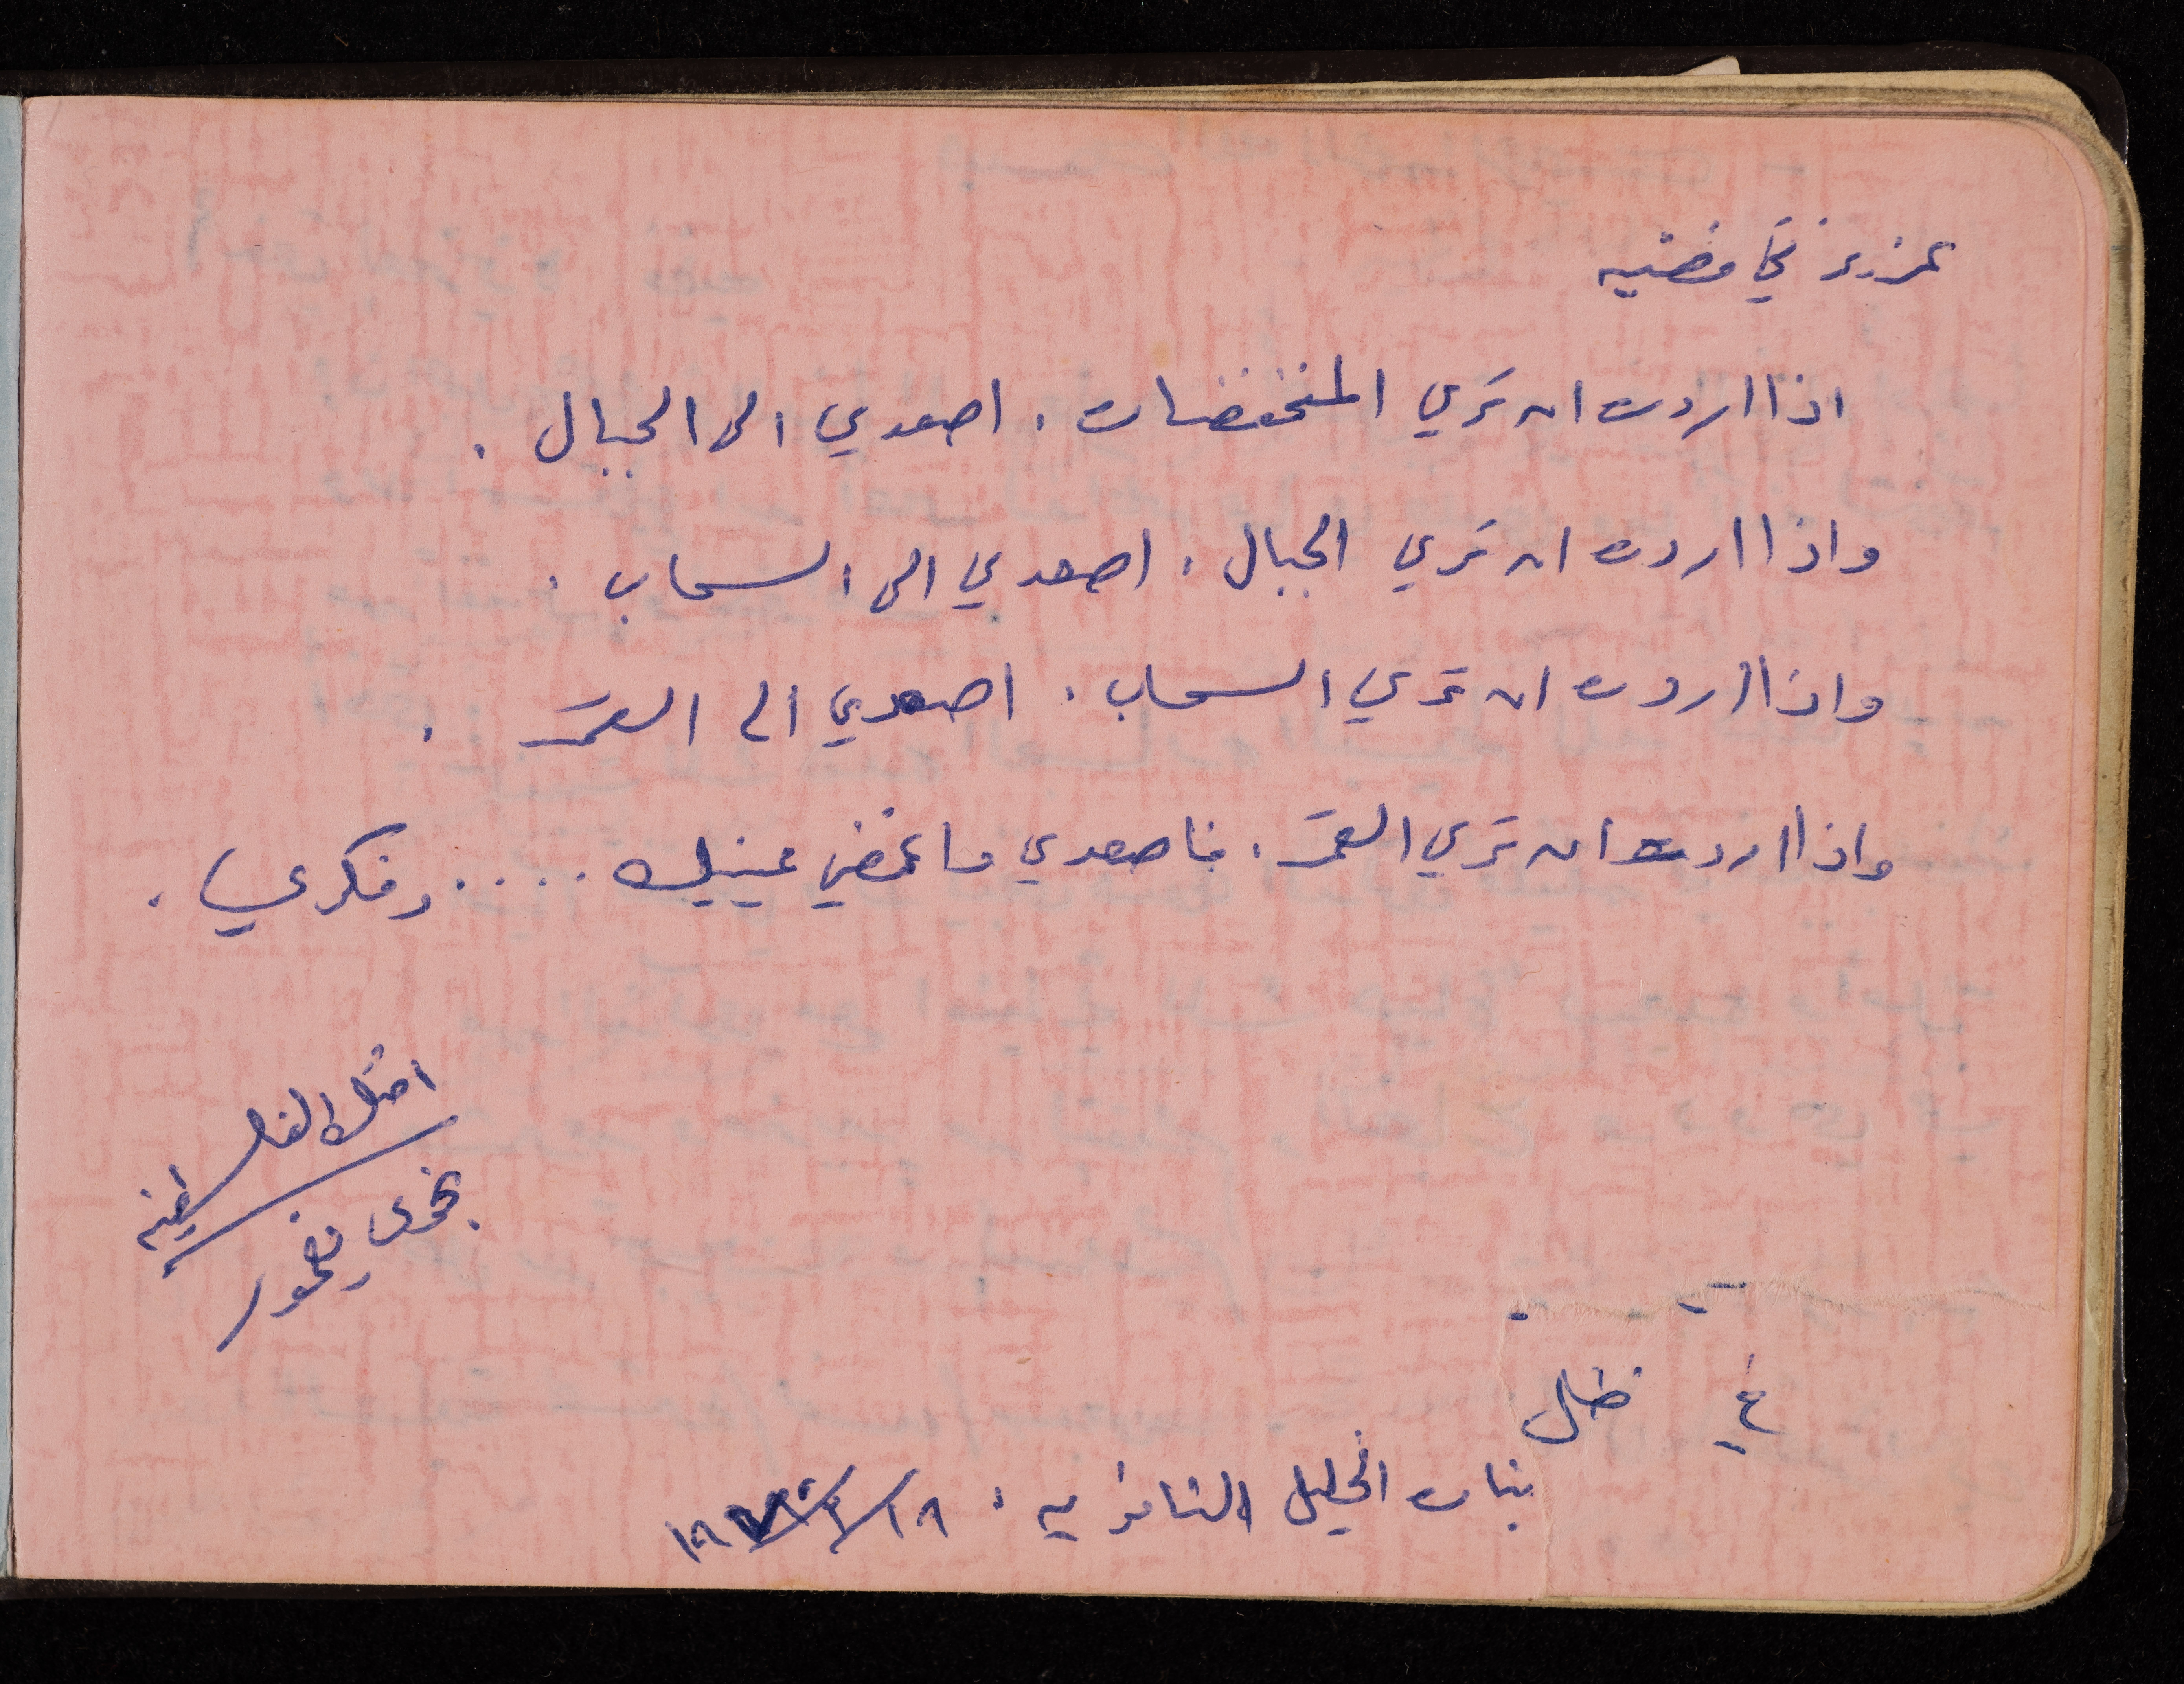 عزيزتي فضيه
اذا اردت ان تري المنخفضات . اصعدي الى الجبال .
واذا اردت ان تري الجبال . اصعدي الى السحاب .
واذا اردت ان تري السحاب . اصعدي الى القمر .
واذا اردت ان تري القمر . فاصعدي فاغمضي عينيك .... وفكري .
الفلسطينيه
في ظل
بنات الخليل الثانويه .